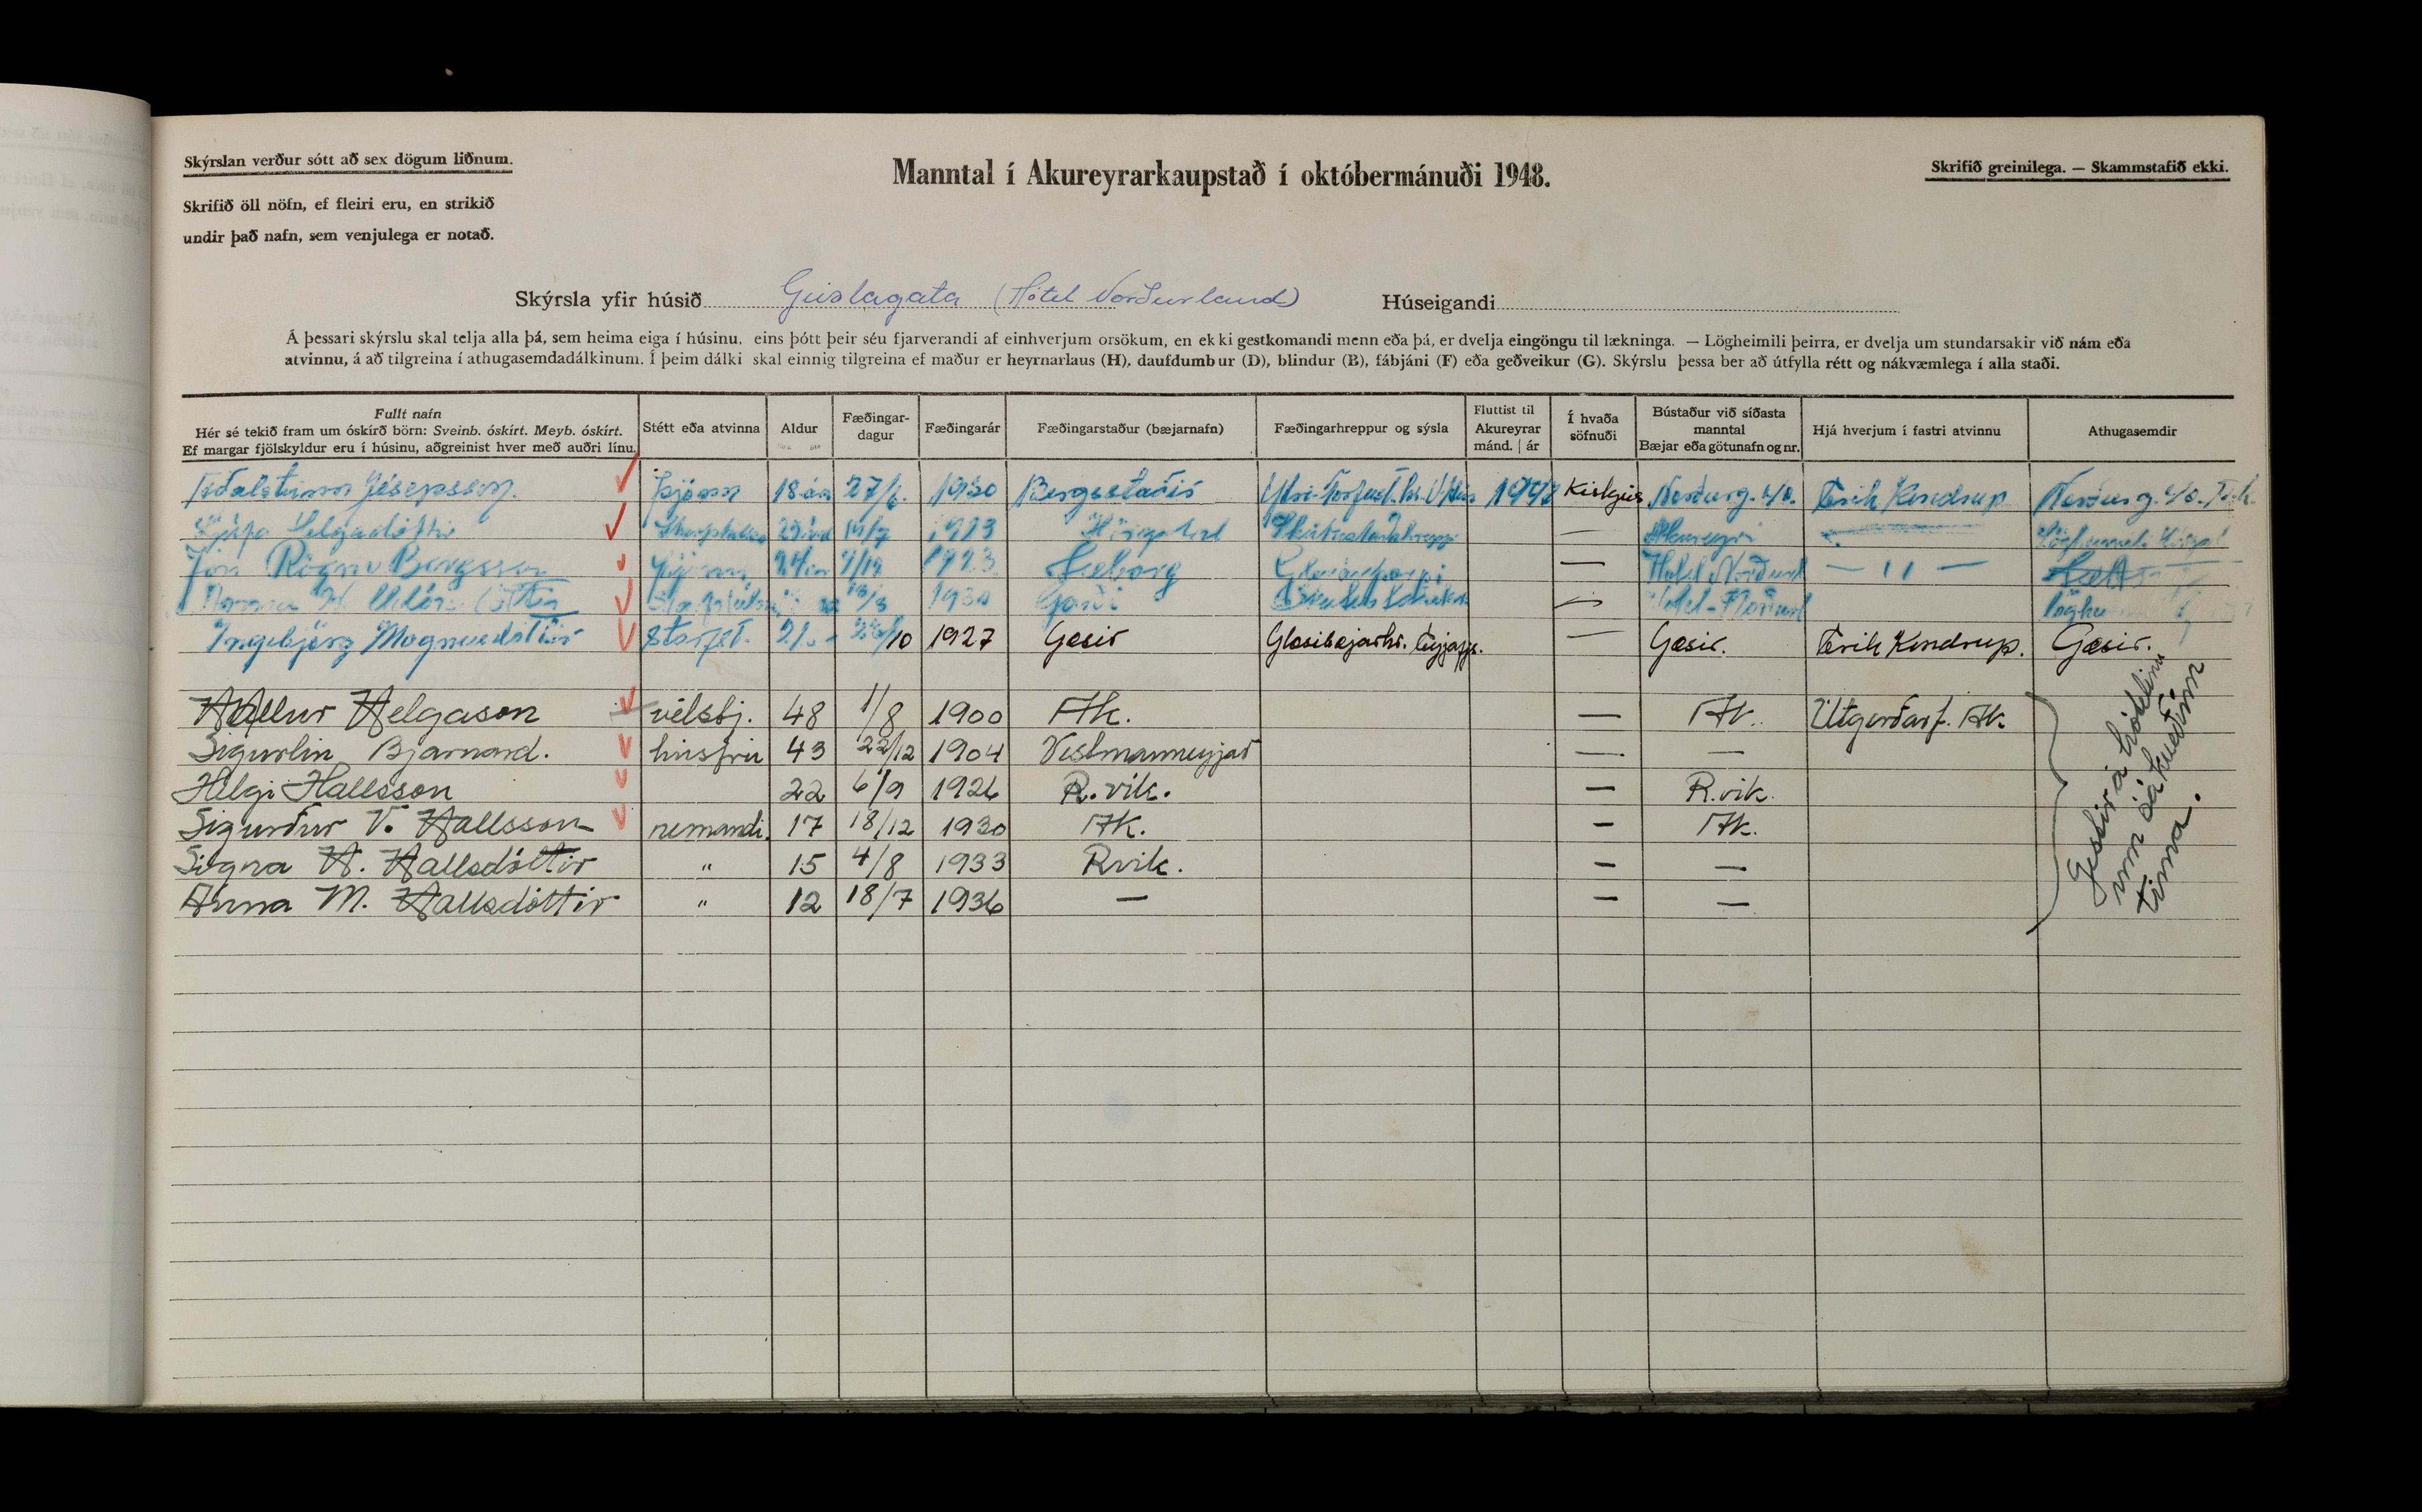 Skýrslan verður sótt að sex dögum liðnum.
Skrifið öll nöfn, ef fleiri eru, en strikið
undir það nafn, sem venjulega er notað.
Manntal í Akureyrarkaupstað í októbermánuði 1948.
Skrifið greinilega. — Skammstafið ekki.
Skýrsla yfir húsið Geislagata (Hótel Norðurland) Húseigandi
Á þessari skýrslu skal telja alla þá, sem heima eiga í húsinu, eins þótt þeir séu fjarverandi af einhverjum orsökum, en ekki gestkomandi menn eða þá, er dvelja eingöngu til lækninga. — Lögheimili þeirra, er dvelja um stundarsakir við nám eða
atvinnu, á að tilgreina í athugasemdadálkinum. Í þeim dálki skal einnig tilgreina ef maður er heyrnarlaus (H), daufdumbur (D), blindur (B), fábjáni (F) eða geðveikur (G). Skýrslu þessa ber að útfylla rétt og nákvæmlega í alla staði.
Fullt nafn
Hér sé tekið fram um óskírð börn: Sveinb. óskírt. Meyb. óskírt.
Ef margar fjölskyldur eru í húsinu, aðgreinist hver með auðri línu.
Stétt eða atvinna
Aldur
Fæðingar-
dagur
Fæðingarár
Fæðingarstaður (bæjarnafn)
Fæðingarhreppur og sýsla
Fluttist til
Akureyrar
mánd. | ár
Í hvaða
söfnuði
Bústaður við síðasta
manntal
Bæjar eða götunafn og nr.
Hjá hverjum í fastri atvinnu
Athugasemdir
Aðalsteinn Jósepsson. þjónn 18 ára 27/6. 1930 Bergsstaðir 1948 Norðurg. Erik Kondrup Norðurg.
Helgadóttir 1923 Akureyri
Jón Rögnv Bergsson þjónn 1923 Sæborg Glerárþorpi — Hotel Norðurl — " —
1930 Garði Hotel-Norðurl
Ingibjörg Magnúsdóttir Starfst. /10 1927 Gæsir Glæsibæjarhr. Eyjafj. — Gæsir. Erik Kondrup. Gæsir.
Hallur Helgason vélstj. 48 1/8 1900 Ak. — Ak. Útgerðarf. Ak
Sigurlín Bjarnard. húsfrú 43 22/12 1904 Vestmanneyjar — —
Helgi Hallsson 22 6/9 1926 R.vík. — R.vik.
Sigurður V. Hallsson nemandi. 17 18/12 1930 Ak. — Ak.
Signa H. Hallsdóttir " 15 4/8 1933 Rvik. — —
Anna M. Hallsdóttir " 12 18/7 1936 — — —
Gestir á hótelinu
um óákveðinn
tíma.